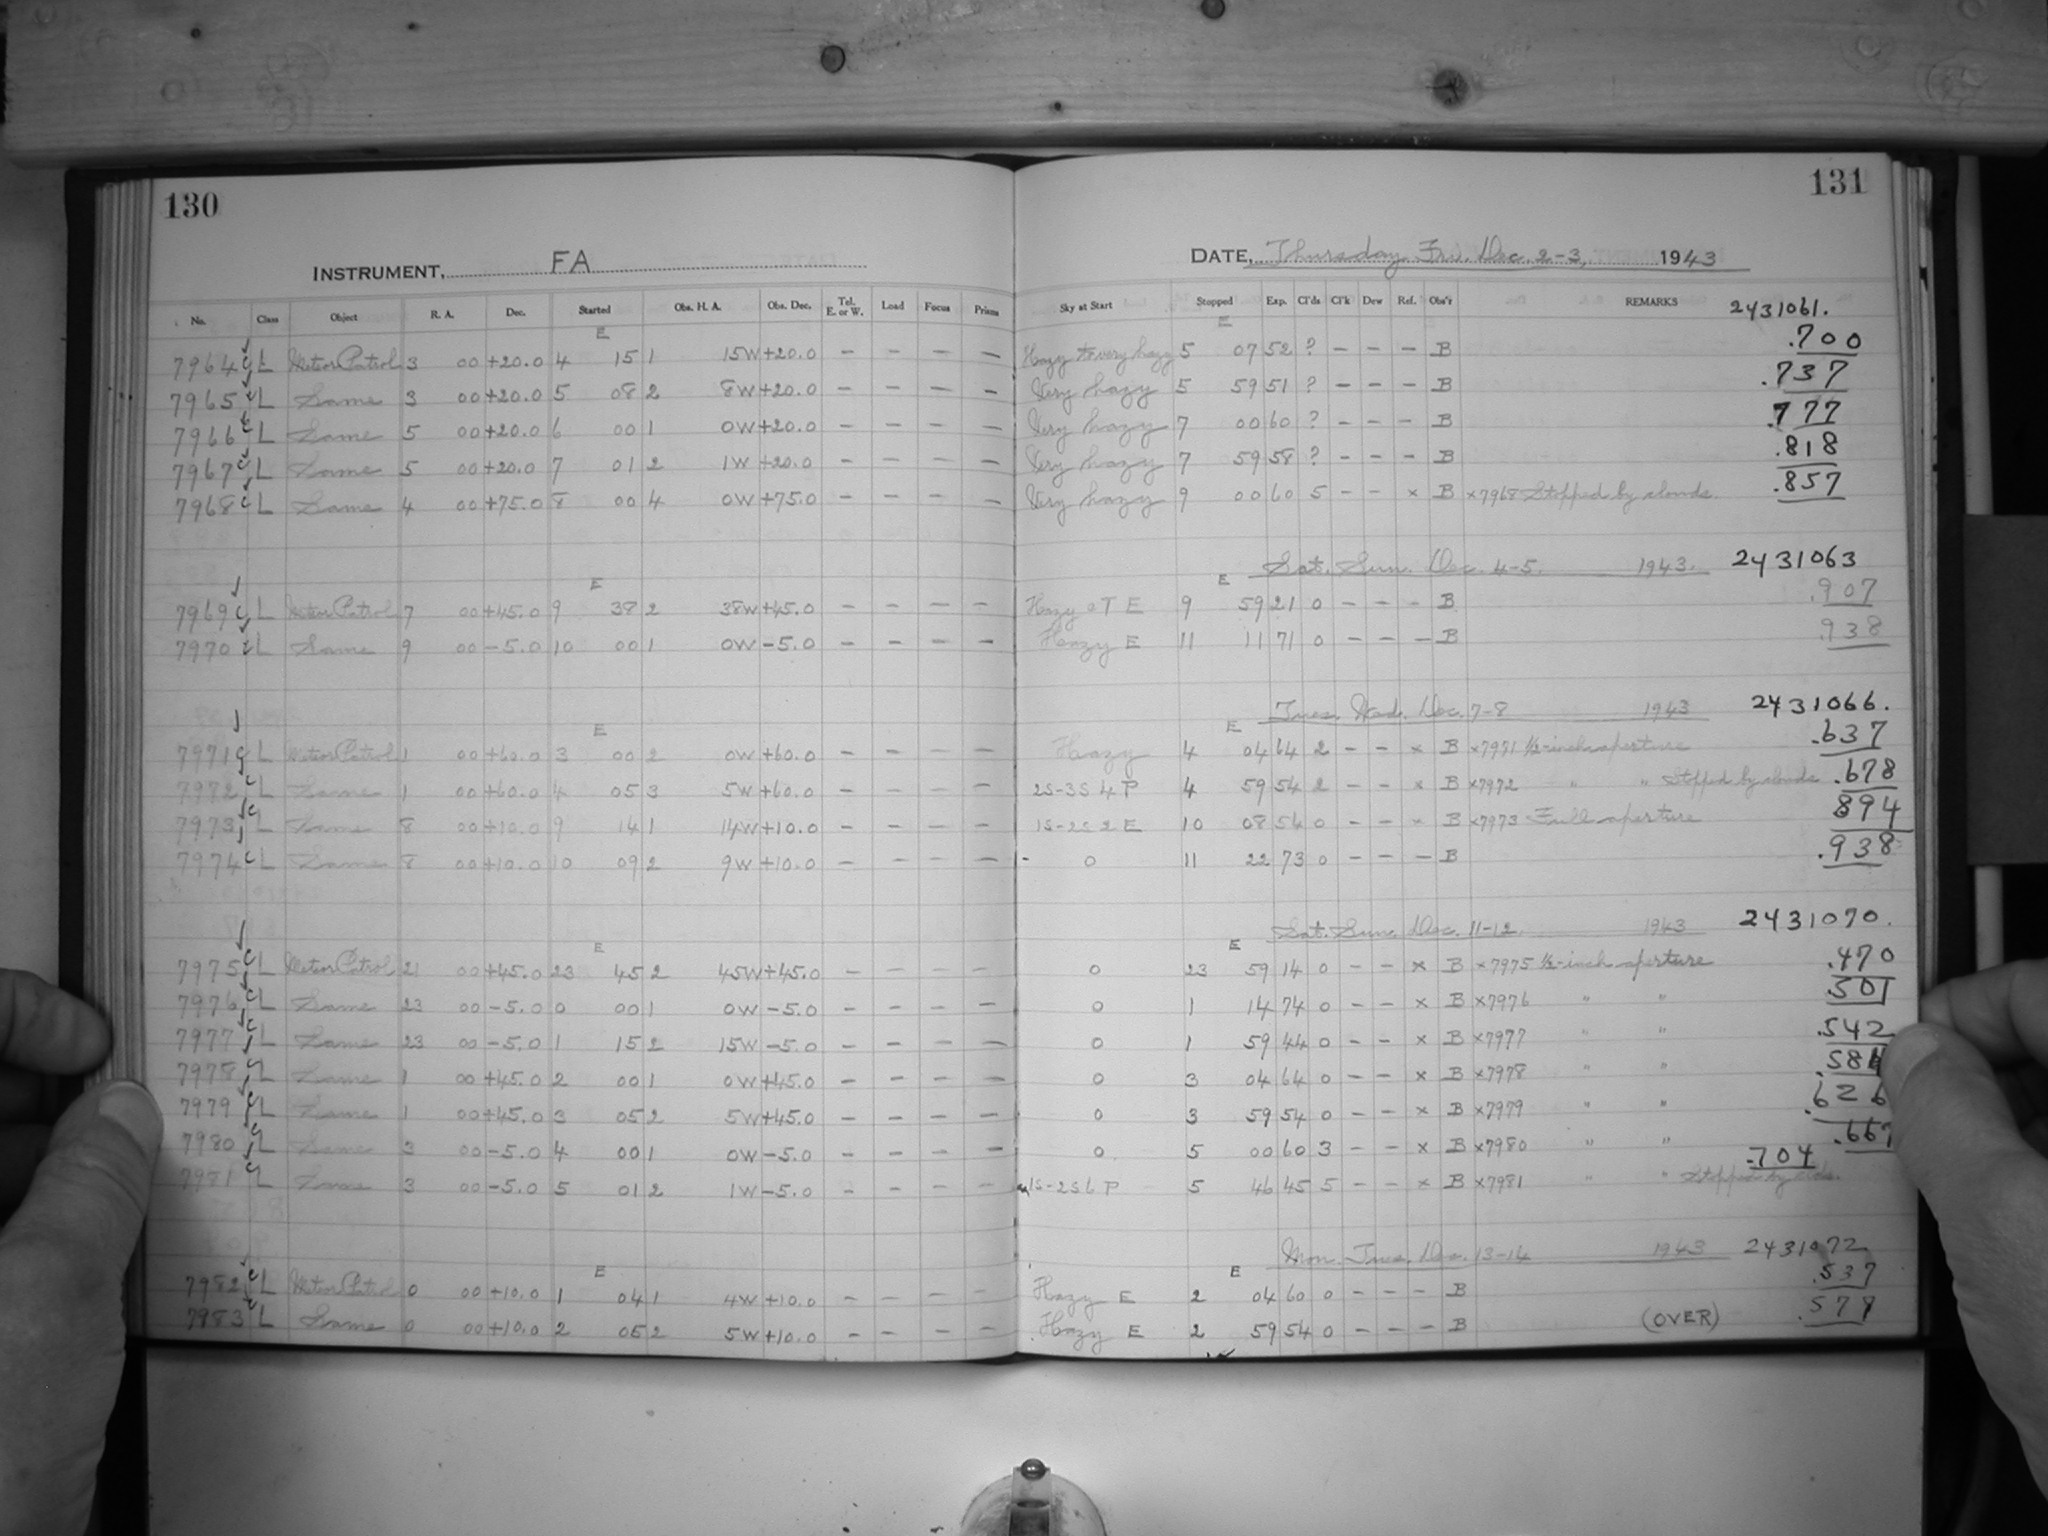 130
131
INSTRUMENT, FA
DATE, Thursday Fri. Dec. 2-3, 1943
No. Class Object R. A. Dec. Started Obs. H. A. Obs. Dec. Tel. E. or W. Load Focus Prism Sky at Start Stopped Exp. Cl'ds Cl'k Dew Ref. Obs'r REMARKS 2431061.
E E
7964 c L Meteor Patrol 3 00 +20.0 4 15 1 15W +20.0 — — — — Hazy to very hazy 5 07 52 ? — — — B .700
7965 c L Same 3 00 +20.0 5 08 2 8W +20.0 — Very hazy 5 59 51 ? — — — B .737
7966 c L Same 5 00 +20.0 6 00 1 0W +20.0 — — — — Very hazy 7 00 60 ? — — — B .777
7967 c L Same 5 00 +20.0 7 01 2 1W +20.0 — — — — Very hazy 7 59 58 ? — — — B .818
7968 c L Same 4 00 +75.0 8 00 4 0W +75.0 — — — — Very hazy 9 00 60 5 — — × B ×7968 Stopped by clouds. .857
Sat. Sun. Dec. 4-5. 1943. 2431063
E E
7969 c L Meteor Patrol 7 00 +45.0 9 38 2 38W +45.0 — — — — Hazy o T E 9 59 21 0 — — — B .907
7970 c L Same 9 00 -5.0 10 00 1 0W -5.0 — — — — Hazy E 11 11 71 0 — — — B .938
Tues. Wed. Dec. 7-8 1943 2431066.
E E
7971 c L Meteor Patrol 1 00 +60.0 3 00 2 0W +60.0 — — — — Hazy 4 04 64 2 — — × B ×7971 ½-inch aperture .637
7972 c L Same 1 00 +60.0 4 05 3 5W +60.0 — — — — 2S-3S 4 P 4 59 54 2 — — × B ×7972 " " Stopped by clouds .678
7973 c L Same 8 00 +10.0 9 14 1 14W +10.0 — — — — 1S-2S 2 E 10 08 54 0 — — × B ×7973 Full aperture 894
7974 c L Same 8 00 +10.0 10 09 2 9W +10.0 — — — — 0 11 22 73 0 — — — B .938
Sat. Sun. Dec. 11-12. 1943 2431070.
E E
7975 c L Meteor Patrol 21 00 +45.0 23 45 2 45W +45.0 — — — — 0 23 59 14 0 — — × B ×7975 ½-inch aperture .470
7976 c L Same 23 00 -5.0 0 00 1 0W -5.0 — — — — 0 1 14 74 0 — — × B ×7976 " " .501
7977 c L Same 23 00 -5.0 1 15 2 15W -5.0 — — — — 0 1 59 44 0 — — × B ×7977 " " .542
7978 c L Same 1 00 +45.0 2 00 1 0W +45.0 — — — — 0 3 04 64 0 — — × B ×7978 " "
7979 c L Same 1 00 +45.0 3 05 2 5W +45.0 — — — — 0 3 59 54 0 — — × B ×7979 " " .626
7980 c L Same 3 00 -5.0 4 00 1 0W -5.0 — — — — 0 5 00 60 3 — — × B ×7980 " " .667
7981 c L Same 3 00 -5.0 5 01 2 1W -5.0 — — — — 1S-2S 6 P 5 46 45 5 — — × B ×7981 " " Stopped by clds. .704
Mon. Tues. Dec. 13-14 1943 2431072
E E
7982 c L Meteor Patrol 0 00 +10.0 1 04 1 4W +10.0 — — — — Hazy E 2 04 60 0 — — — B .537
7983 c L Same 0 00 +10.0 2 05 2 5W +10.0 — — — — Hazy E 2 59 54 0 — — — B (OVER) .578